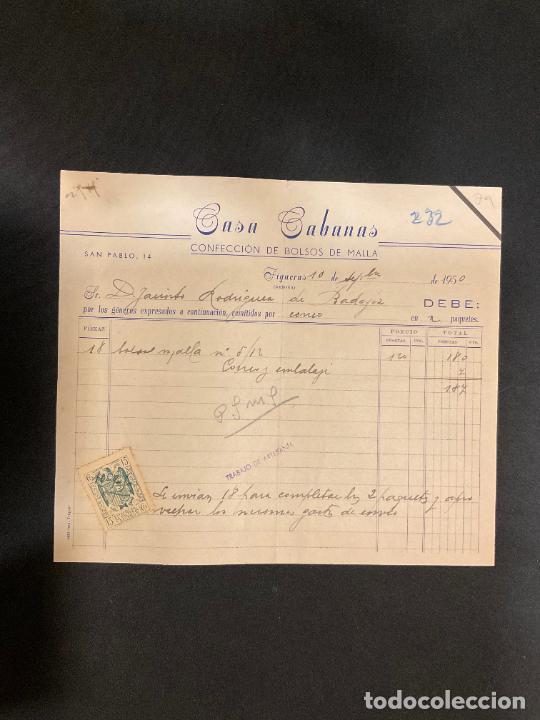 232
79
Casa Cabanas
CONFECCIÓN DE BOLSOS DE MALLA
SAN PABLO, 14
Figueras 10 de Sepbre de 1950
(GERONA)
Sr. D. Jacinto Rodriguez de Badajoz DEBE:
por los géneros expresados a continuación, remitidos por correo en 2 paquetes.
PIEZAS PRECIO TOTAL
PESETAS CTS. PESETAS CTS.
18 bolsos malla nº 5/12 120 180
Correo y embalaje 7
187
TRABAJO DE ARTESANIA
15
Se envian 18 para completar los 2 paquetes y apro
vechar los mismos gastos de envio
todocoleccion
todocoleccion.net